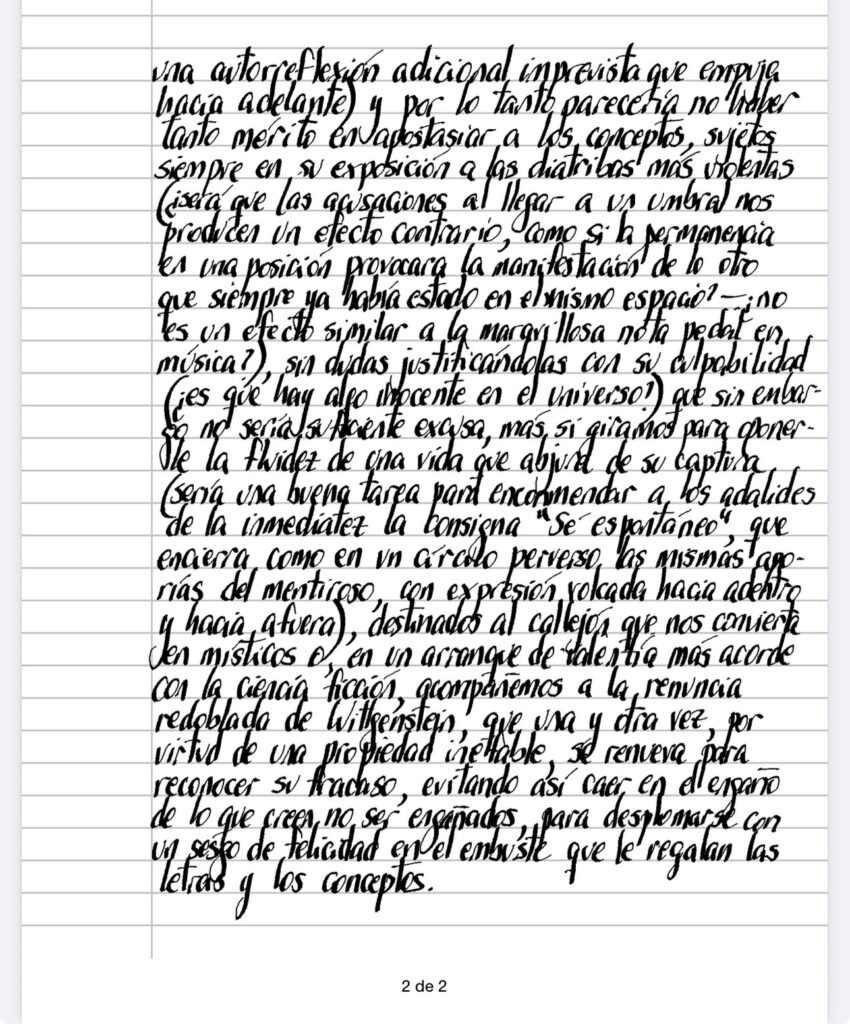 una autorreflexión adicional imprevista que empuja
hacia adelante) y por lo tanto parecería no haber
tanto mérito en apostasiar a los conceptos, sujetos
siempre en su exposición a las diatribas más violentas
(¿será que las acusaciones al llegar a un umbral nos
producen un efecto contrario, como si la permanencia
en una posición provocara la manifestación de lo otro
que siempre ya había estado en el mismo espacio? — ¿no
es un efecto similar a la maravillosa nota pedal en
música?), sin dudas justificándolas con su culpabilidad
(¿es que hay algo inocente en el universo?) que sin embar-
go no sería suficiente excusa, más si giramos para oponer-
le la fluidez de una vida que abjura de su captura
(sería una buena tarea para encomendar a los adalides
de la inmediatez la consigna "Sé espontáneo", que
encierra, como en un círculo perverso, las mismas apo-
rías del mentiroso, con expresión volcada hacia adentro
y hacia afuera), destinados al callejón que nos convierta
en místicos o, en un arranque de valentía más acorde
con la ciencia ficción, acompañemos a la renuncia
redoblada de Wittgenstein, que una y otra vez, por
virtud de una propiedad inefable, se renueva para
reconocer su fracaso, evitando así caer en el engaño
de lo que creen no ser engañados, para desplomarse con
un sesgo de felicidad en el embuste que le regalan las
letras y los conceptos.
2 de 2